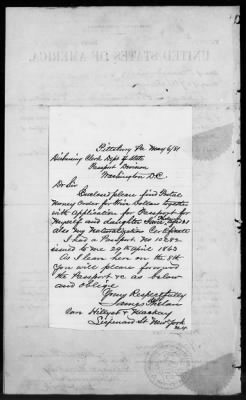 UNITED STATES OF AMERICA.
Pittsburg Pa May 6/81
Disbursing Clerk Dept of State
Passport Division
Washington D.C.
Dr Sir
Enclosed please find Postal
Money Order for Five Dollars together
with application for Passport for
myself and daughter
also my Naturalization Certificate
I had a Passport No 10282
issued to me 29th April 1863
As I leave here on the 8th
you will please forward
the Passport &c as below
and oblige
Yours Respectfully
James Phelan
Care Hillyet & Mackey
St New York